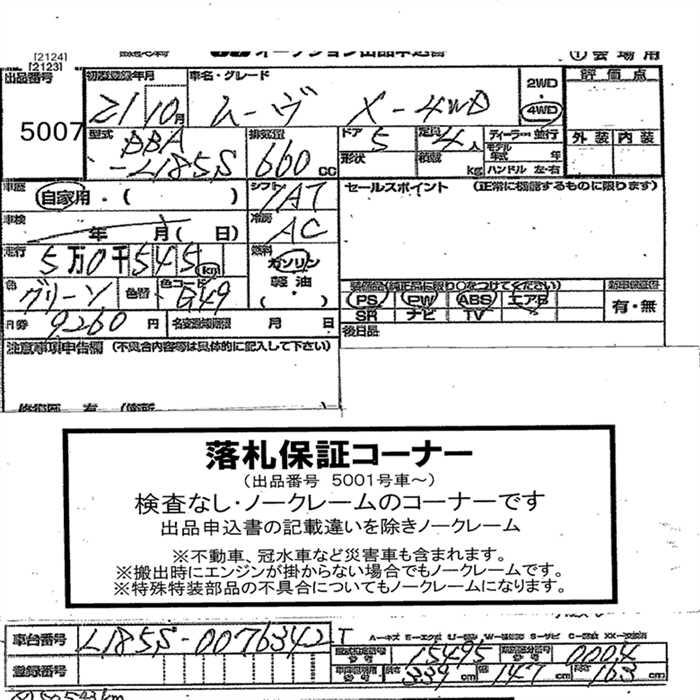 [2124]
[2123]
オークション出品申込書 ①会場用
出品番号 初度登録年月 車名・グレード 2WD・4WD 評価点
5007 21 10月 ムーヴ X-4WD
型式 BBA-L185S 排気量 660cc ドア 5 定員 4人 ディーラー・並行 外装 内装
形状 積載 kg モデル年式 年 ハンドル 左・右
車歴 自家用・( ) シフト IAT セールスポイント (正常に機能するものに限ります)
車検 年 月( 日) 冷房 AC
走行 5万0千545km 燃料 ガソリン・軽油・( )
色 グリーン 色替 色コード G49 装備品(純正品に限り○をつけてください) 新車保証書
PS PW ABS エアB 有・無
SR ナビ TV
R券 9260円 名変期限 月 日 後日品
注意事項申告欄 (不具合内容等は具体的に記入して下さい)
修復歴 有 (箇所
落札保証コーナー
(出品番号 5001号車~)
検査なし・ノークレームのコーナーです
出品申込書の記載違いを除きノークレーム
※不動車、冠水車など災害車も含まれます。
※搬出時にエンジンが掛からない場合でもノークレームです。
※特殊特装部品の不具合についてもノークレームになります。
車台番号 L185S-0076342 T
型式指定番号 15495 類別区分番号 0004
登録番号 長さ 339cm 幅 147cm 高さ 163cm
50,543km